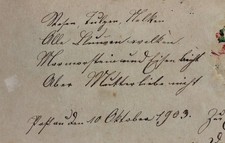 Rosen Tulpen, Nelken
Alle Blumen welken
Marmorstein und Eisen bricht
Aber Mutterliebe nicht
den 10 Oktober 1903.